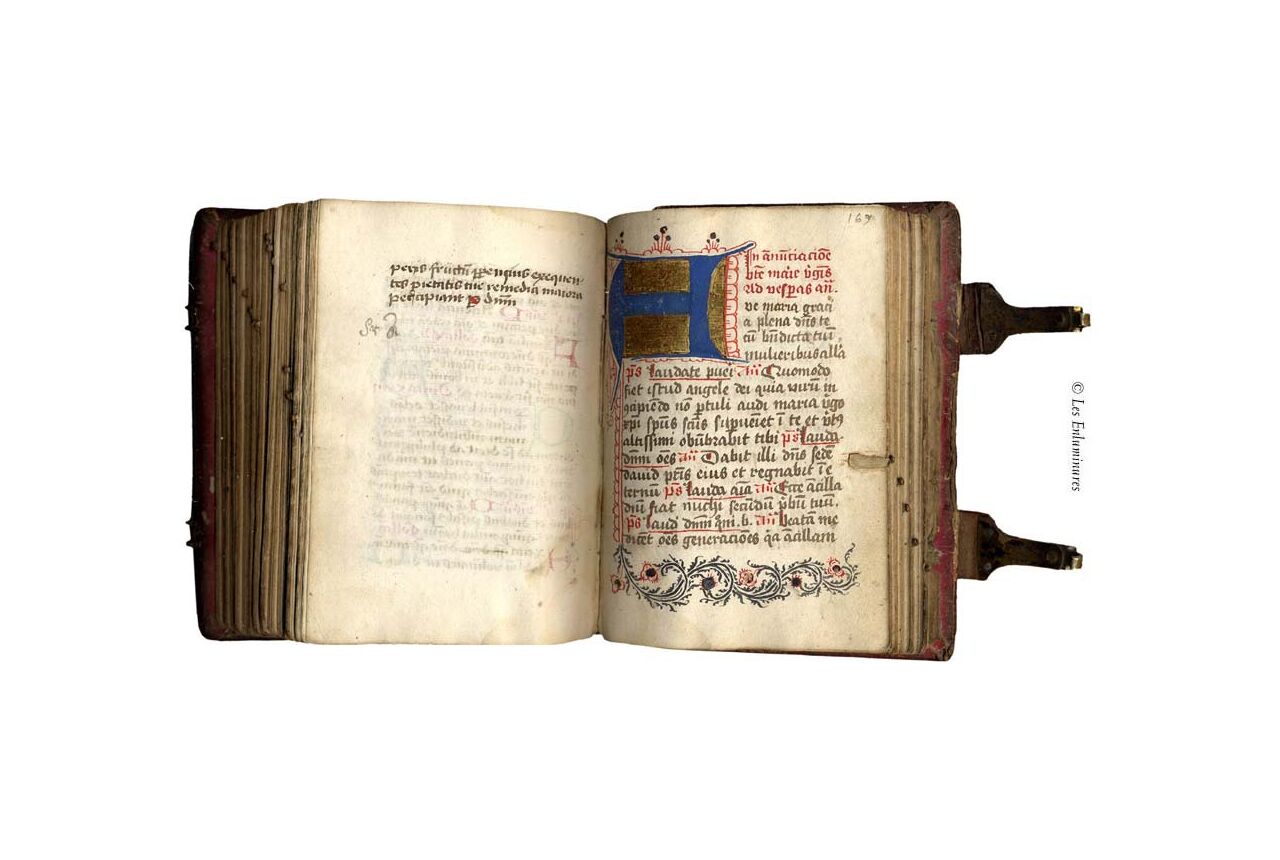 peris fructū ꝑꝑenꝰius exequen
tes pietatis tue remedia maiora
percipiant p dnm
169
In an̄unciaciōe
bt̄e marie v̓gīs
Ad vesp̄as an̄.
Ave maria graci
a plena dn̄s te
cū bn̄dicta tu ī
mulieribus alla
p̄s laudate puei an̄ Quomodo
fiet istud angele dei quia virū in
ꝯcipiēdo nō ꝑtuli audi maria v̓go
xp̄i spūs scūs sup̄ueīet ī te et v̓tꝰ
altissimi obūbrabit tibi p̄s lauda
dnm̄ oēs an̄ Dabit illi dn̄s sedē
david pr̄is eius et regnabit ī e
ternū p̄s lauda aīa an̄ Ecce ācilla
dn̄i fiat michi secūdū v̓bū tuū.
p̄s laud dnm̄ qm̄. b. an̄ beatā me
dicēt oēs generaciōes q̓a ācillam
© Les Enluminures